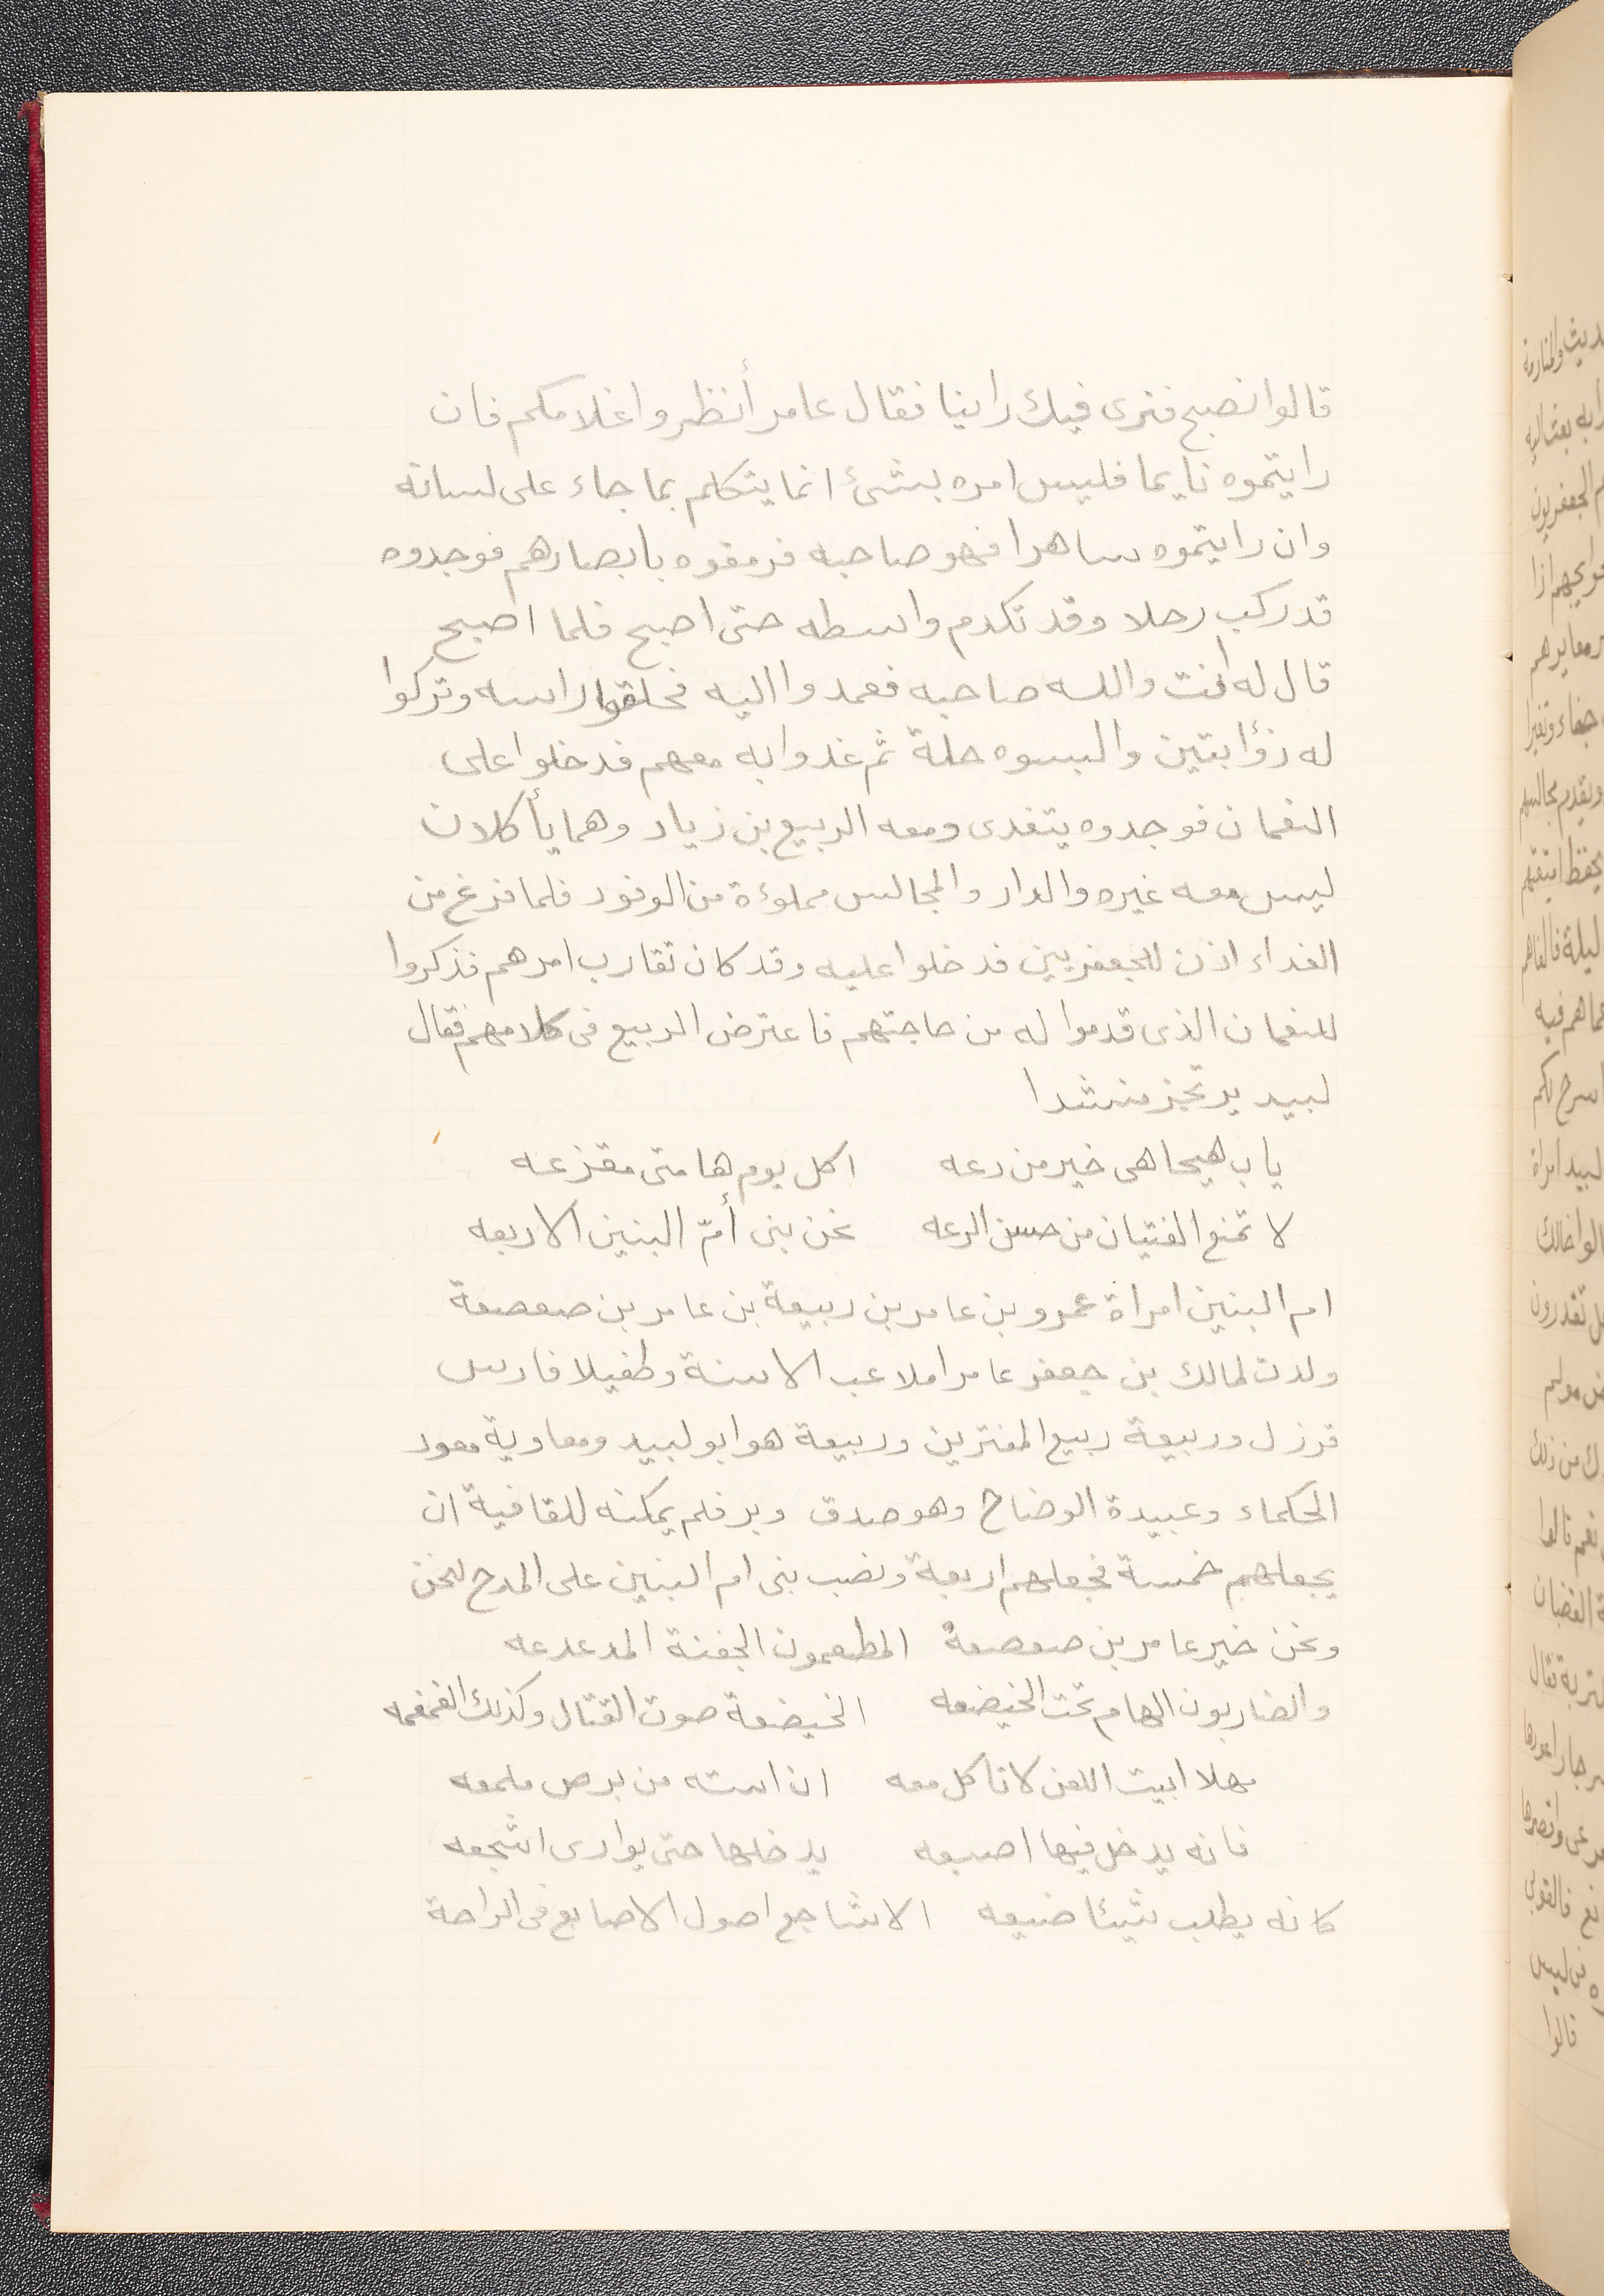 قالوا نصبح فنرى فيك راينا فقال عامر أنظروا غلامكم فان
رايتموه نايما فليس امره بشئ انما يتكلم بما جاء على لسانه
وان رايتموه ساهرا فهو صاحبه فرمقوه بابصارهم فوجدوه
قد ركب رحلا وقد تكدم واسطه حتى اصبح فلما اصبح
قال له انت والله صاحبه فعمدوا اليه فحلقوا راسه وتركوا
له ذؤابتين والبسوه حلة ثم غدوا به معهم فدخلوا على
النعمان فوجدوه يتغدى ومعه الربيع بن زياد وهما يأكلان
ليس معه غيره والدار والمجالس مملوءة من الوفود فلما فرغ من
الغداء اذن للجعفريين فدخلوا عليه وقد كان تقارب امرهم فذكروا
للنعمان الذى قدموا له من حاجتهم فاعترض الربيع فى كلامهم فقال
لبيد يرتجز منشدا
يا رب هيجا هى خير من دعه اكل يوم هامتى مقزعه
لا تمنع الفتيان من حسن الرعه نحن بنى أمّ البنين الاربعه
ام البنين امراة عمرو بن عامر بن ربيعة بن عامر بن صعصعة
ولدت لمالك بن جعفر عامرا ملاعب الاسنة وطفيلا فارس
قرزل وربيعة ربيع المقترين وربيعة هو ابو لبيد ومعاوية معود
الحكماء وعبيدة الوضاح وهو صدق وبر فلم يمكنه للقافية ان
يجعلهم خمسة فجعلهم اربعة ونصب بنى ام البنين على المدح لنحن
ونحن خير عامر بن صعصعة المطعمون الجفنة المدعدعه
والضاربون الهام تحت الخيضعه الخيضعة صوت القتال وكذلك الغمغمه
مهلا ابيت اللعن لا تاكل معه ان استه من برص ملمعه
فانه يدخل فيها اصبعه يدخلها حتى يوارى اشجعه
كانه يطلب شيئا ضيعه الاشاجع اصول الاصابع فى الراحة